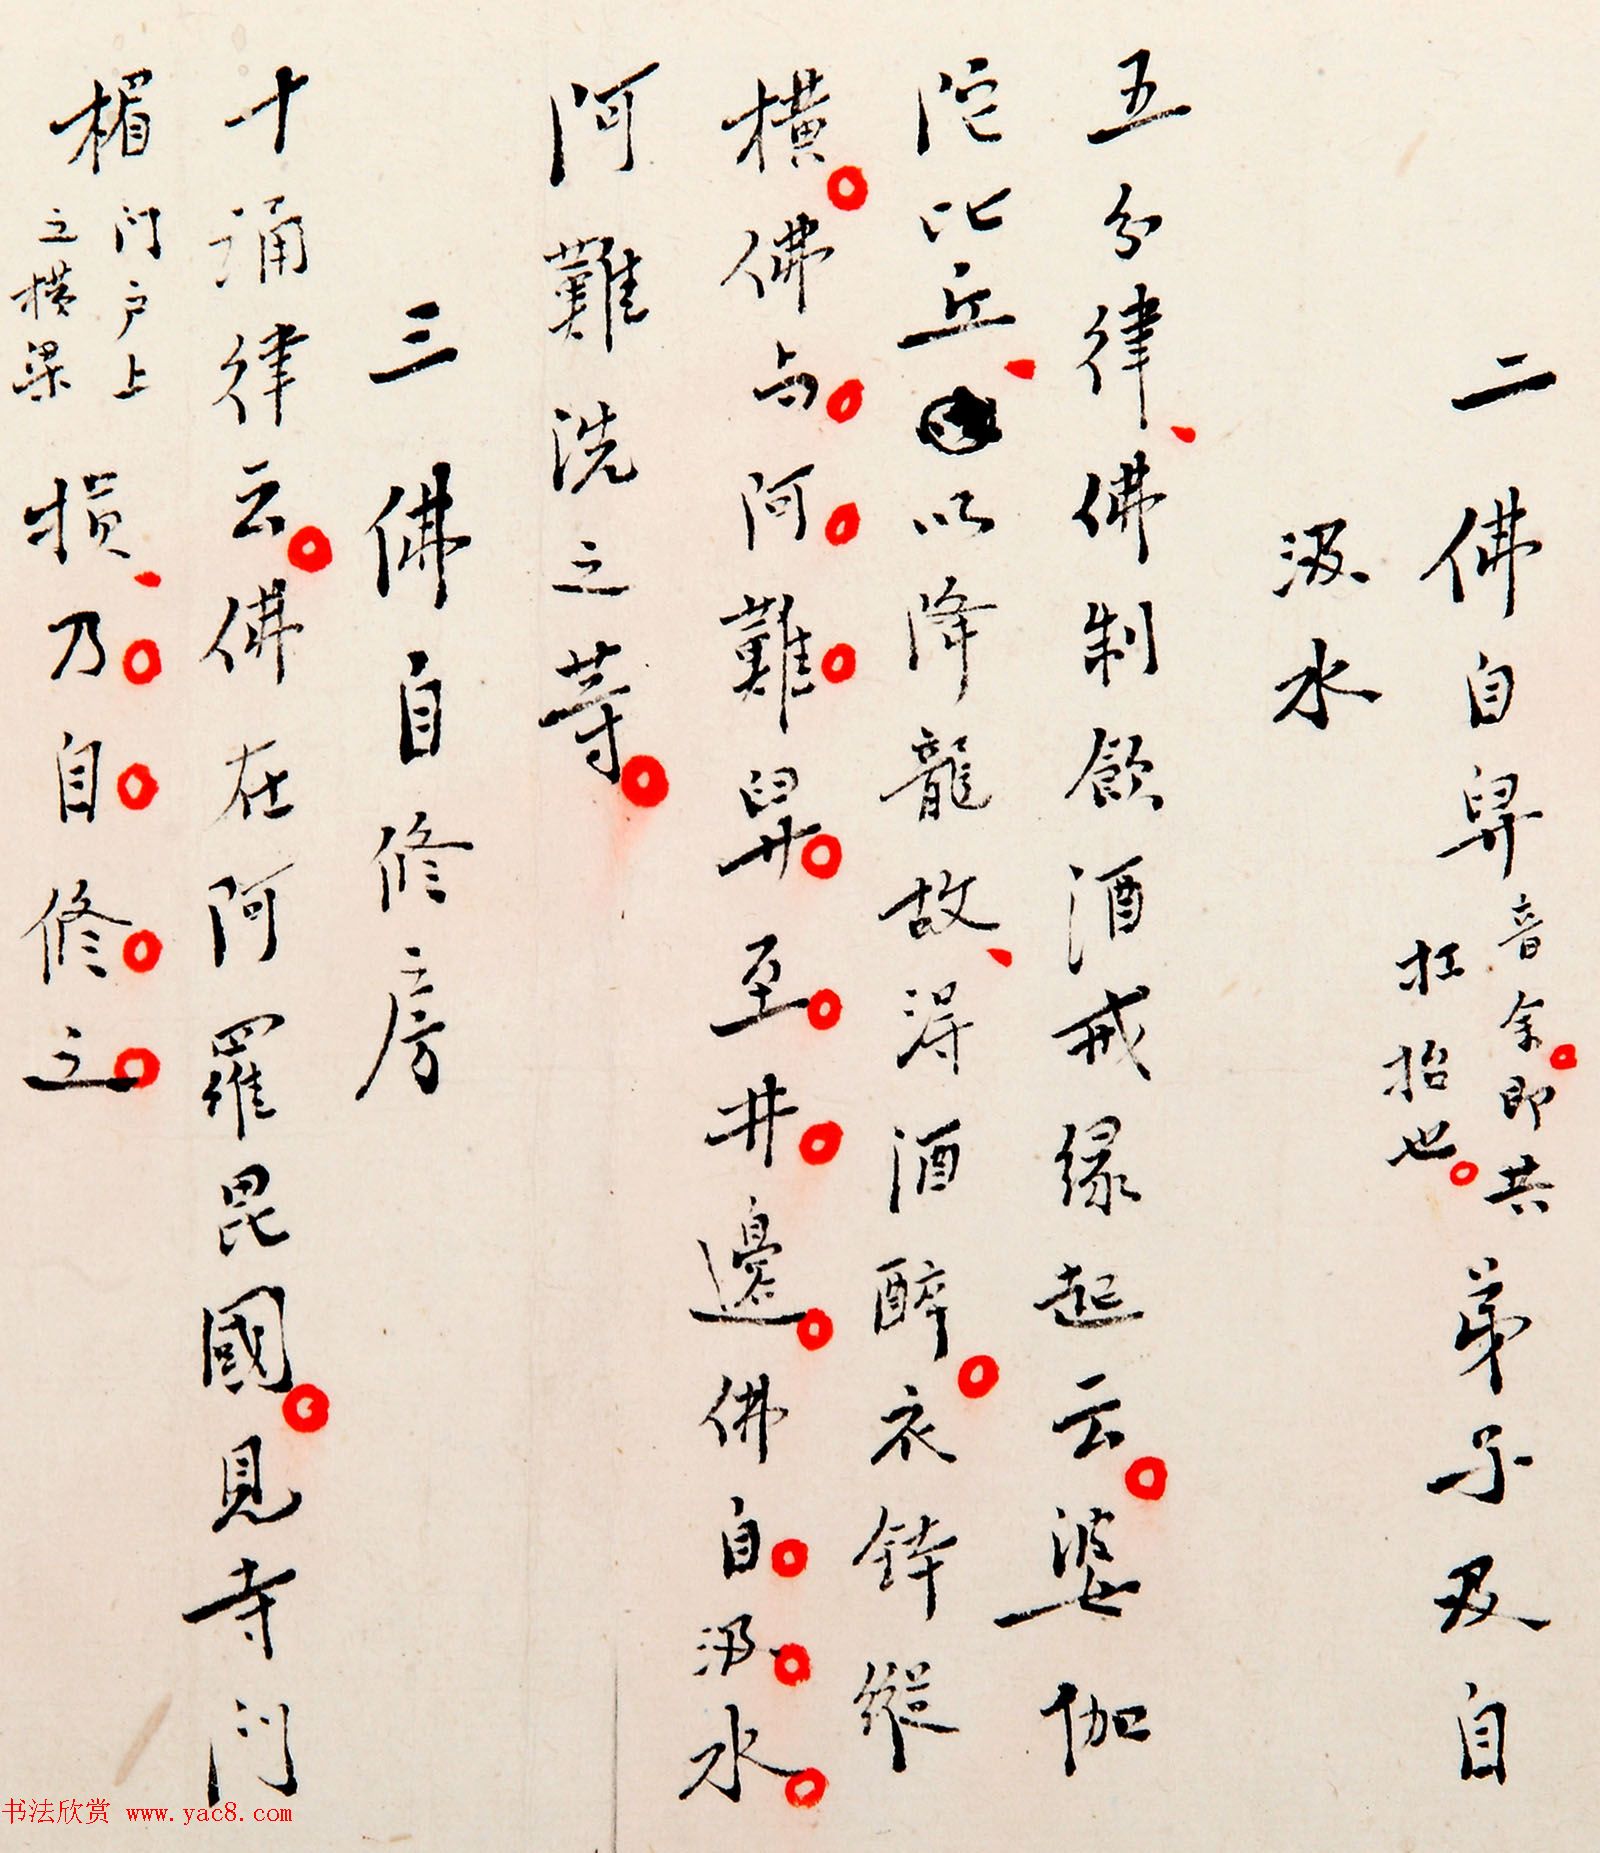 二佛自舁音余。即共扛抬也。弟子及自
汲水
五分律、佛制飲酒戒緣起云。婆伽
陀比丘、以降龍故、得酒醉。衣鉢縱
橫。佛与阿難舁至井邊佛自汲水
阿難洗之等。
三佛自修房
十誦律云。佛在阿羅毘國。見寺門
楣门户上之横梁損、乃自修之
书法欣赏 www.yac8.com